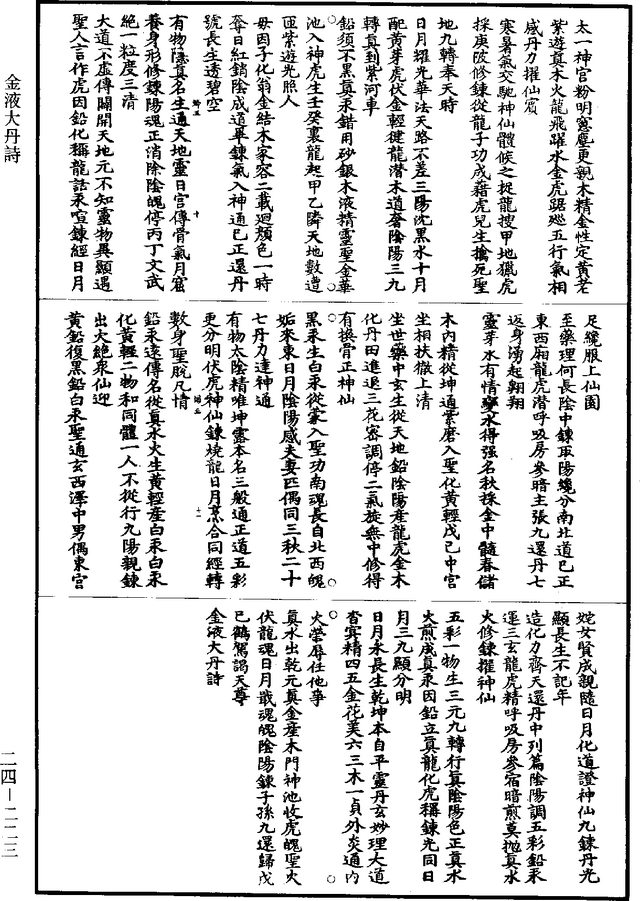 太一神宮粉明窓塵更親木精金性定黃老
紫遊真木火龍飛躍水金虎踞巡五行氣相
感丹力擢仙賓
寒暑氣交馳神仙體候之捉龍搜甲地獵虎
採庚陂修鍊從龍子功成藉虎兒生擒死聖
地九轉奉天時
日月耀光華法天路不差三陽沈黑水十月
配黃芽虎伏金輕健龍潛木道奢陰陽三九
轉真到紫河車
鉛須不黑真汞錯用砂銀木液精靈聖金華
池入神虎生壬癸裏龍起甲乙隣天地數遭
匝紫遊光照人
毋因子化翁金結木家容二載迴顏色一時
奪日紅銷陰成道畢鍊氣入神通已正還丹
號長生透碧空
有物隱真名生通天地靈日宮傳骨氣月窟
養身形修鍊陽魂正消除陰魄停丙丁文武
絕一粒度三清
大道不虛傳關開天地元不知靈物異顯遇
聖人言作虎因鉛化稱龍話汞喧鍊經日月
足纔服上仙園
至藥理何長陰中鍊取陽纔分南北道已正
東西廂龍虎潛呼吸房參暗主張九還丹七
返身湧起翱翔
靈芽水有情變水得强名秋採金中髓春儲
木內精從坤通紫磨入聖化黃輕戊己中宮
坐相扶徹上清
坐世藥中玄生從天地鉛陰陽產龍虎金木
化丹田進退三花密調停二氣旋無中修得
有換骨正神仙
黑汞生白汞從蒙入聖功南魂長自北西魄
姤來東日月陰陽感夫妻匹偶同三秋二十
七丹力達神通
有物太陰精唯坤靈本名三般通正道五彩
更分明伏虎神仙鍊燒龍日月烹合同經轉
數身聖脫凡情
鉛汞遠傳名從真水火生黃輕產白汞白汞
化黃輕二物和同體一人不從行九陽親鍊
出大絕衆仙迎
黃鉛復黑鉛白汞聖通玄西澤中男偶東宮
姹女賢成親隨日月化道證神仙九鍊丹光
顯長生不記年
造化力齊天還丹中列篇陰陽調五彩鉛汞
運三玄龍虎精呼吸房參宿暗煎莫拋真水
火修鍊擢神仙
五彩一物生三元九轉行真陰陽色正真水
火煎成真汞因鉛立真龍化虎稱鍊光同日
月三九顯分明
日月永長生乾坤本自平靈丹玄妙理大道
杳冥精四五金花美六三木一貞外炎通內
火榮辱任他爭
真水出乾元真金產木門神池收虎魄聖火
伏龍魂日月戢魂魄陰陽鍊子孫九還歸戊
己鶴駕謁天尊
金液大丹詩
金液大丹詩
二四-二二三